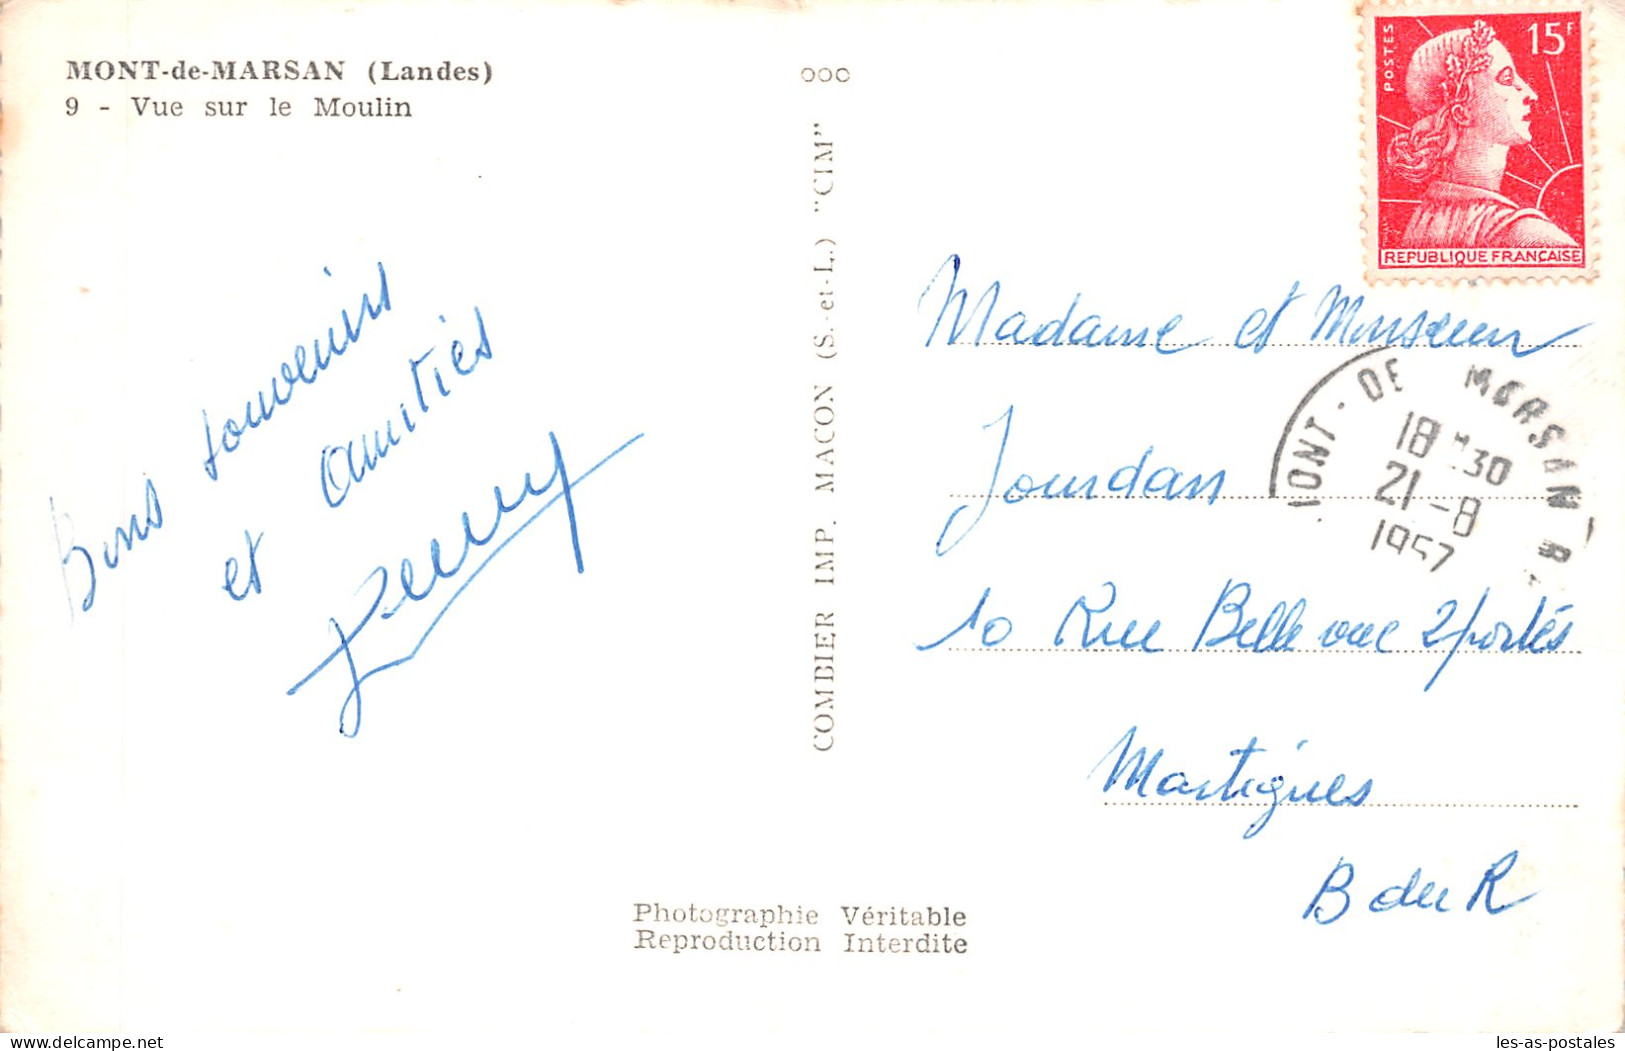 MONT-de-MARSAN (Landes)
9 - Vue sur le Moulin
Bons souvenirs
et amitiés
COMBIER IMP. MACON (S.-et-L.) "CIM"
Photographie Véritable
Reproduction Interdite
POSTES
15F
REPUBLIQUE FRANÇAISE
MONT-DE MARSAN R.
18H30
21-8
1957
Madame et Monsieur
Jourdan
10 Rue Belle vue 2 portés
Martigues
B du R
les-as-postales